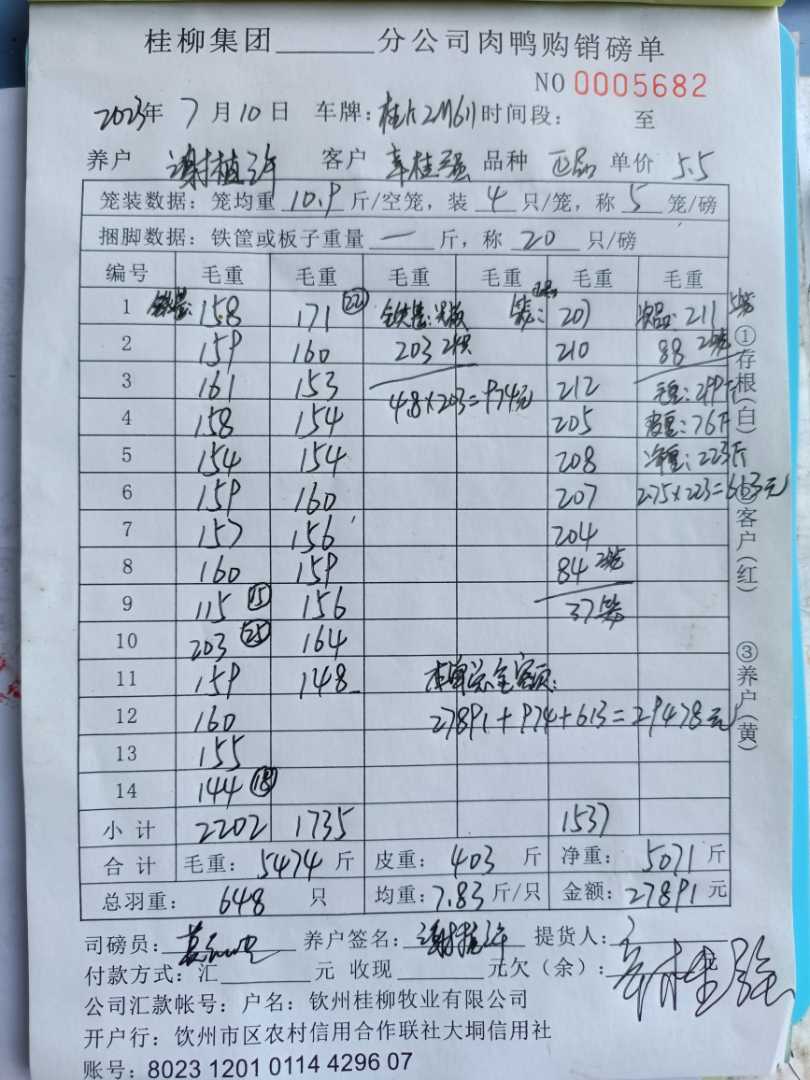 桂柳集团______分公司肉鸭购销磅单
NO 0005682
2023年 7 月 10 日 车牌: 时间段: 至
养户 谢植许 客户 韦桂强 品种 正品 单价 5.5
笼装数据: 笼均重 10.9 斤/空笼, 装 4 只/笼, 称 5 笼/磅
捆脚数据: 铁筐或板子重量 一 斤, 称 20 只/磅
编号 毛重 毛重 毛重 毛重 毛重 毛重
1 158 171 ㉒ 207 次品: 211 5笼
2 159 160 203 210 88 2笼
3 161 153 4.8×203=974元 212 毛重: 299斤
4 158 154 205 皮重: 76斤
5 154 154 208 净重: 223斤
6 159 160 207 2.75×223=613元
7 157 156 204
8 160 159 84 2笼
9 115 ⑮ 156 37笼
10 203 ㉕ 164
11 159 148 本单总金额:
12 160 27891+974+613=29478元
13 155
14 144 ⑱
小计 2202 1735 1537
合计 毛重: 5474 斤 皮重: 403 斤 净重: 5071 斤
总羽重: 648 只 均重: 7.83 斤/只 金额: 27891 元
司磅员: 养户签名: 谢植许 提货人: 韦桂强
付款方式: 汇______元 收现______元欠(余):
公司汇款帐号: 户名: 钦州桂柳牧业有限公司
开户行: 钦州市区农村信用合作联社大垌信用社
账号: 8023 1201 0114 4296 07
①存根(白) ②客户(红) ③养户(黄)